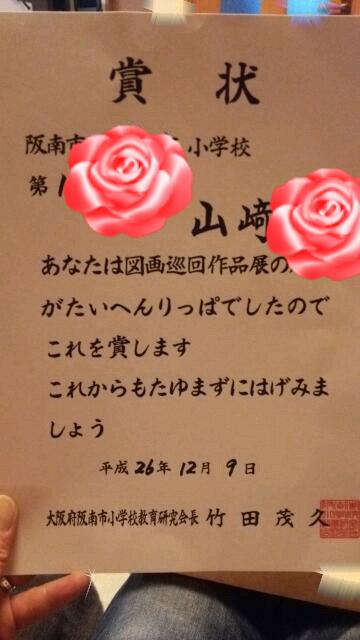 賞 状
阪南市 小学校
第1
山﨑
あなたは図画巡回作品展の
がたいへんりっぱでしたので
これを賞します
これからもたゆまずにはげみま
しょう
平成26年12月9日
大阪府阪南市小学校教育研究会長 竹田茂久